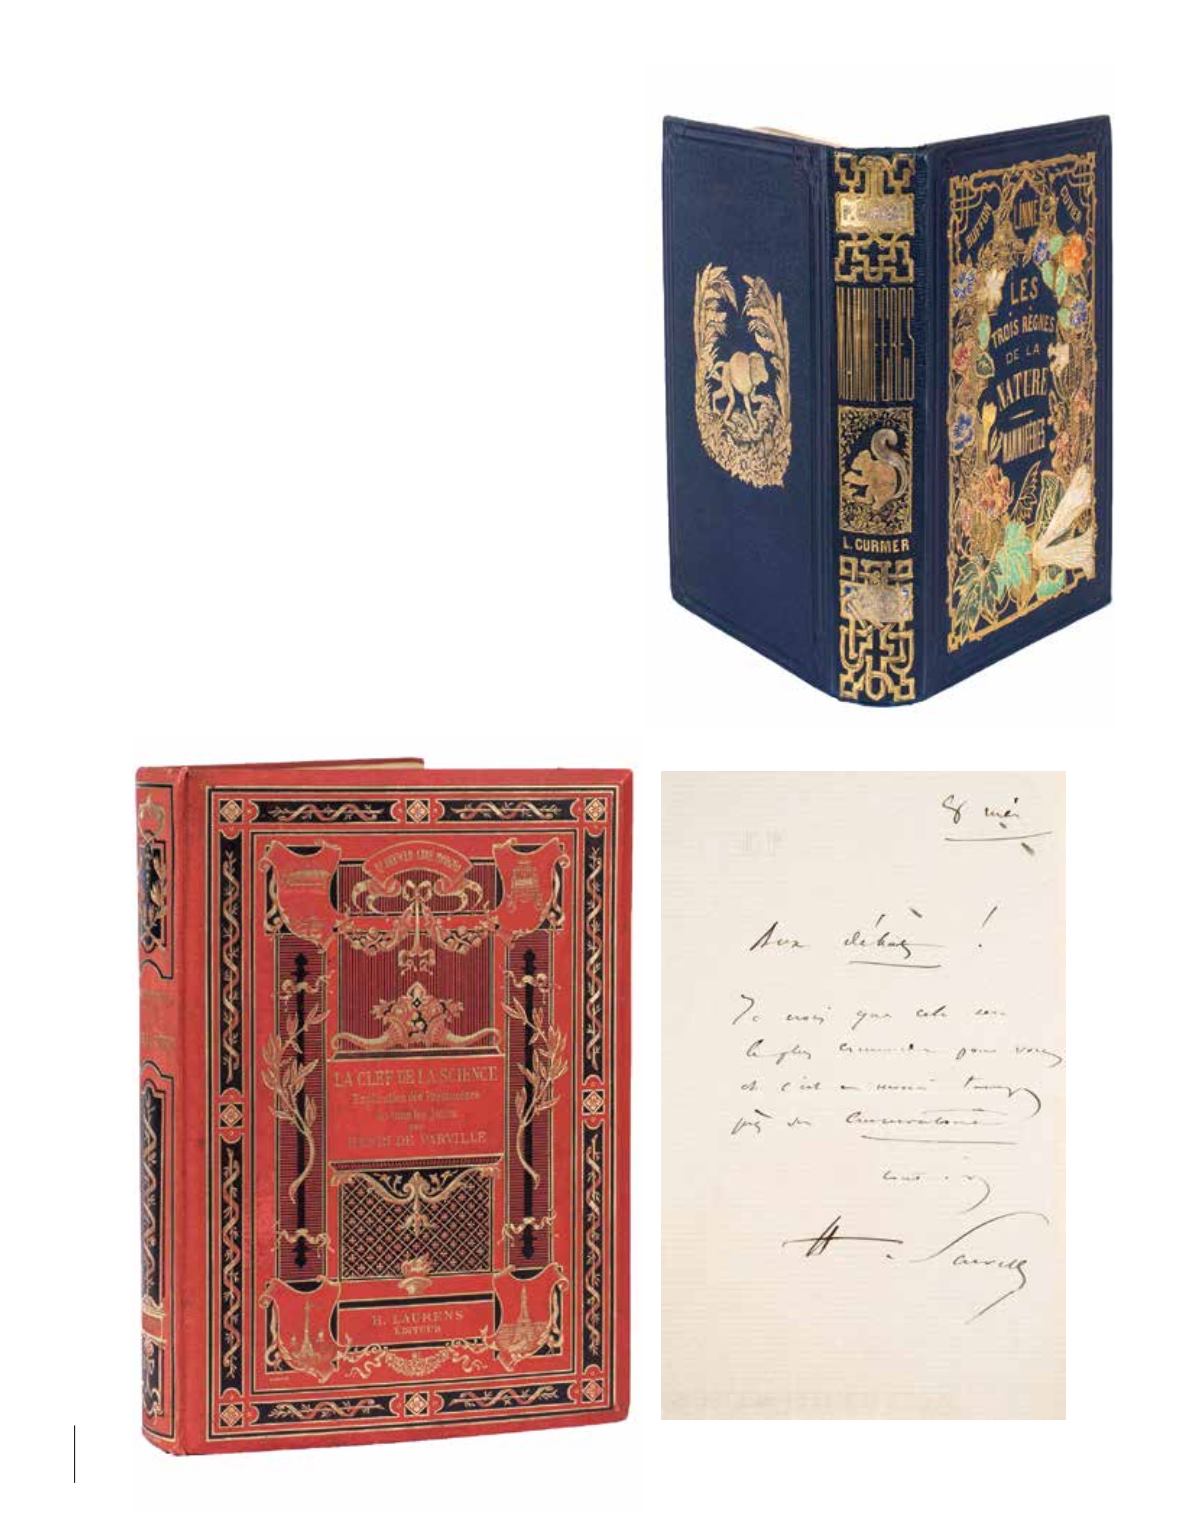 P. GERVAIS
MAMMIFÈRES
L. CURMER
BUFFON
LINNÉ
CUVIER
LES
TROIS RÈGNES
DE LA
NATURE
MAMMIFÈRES
LA CLEF DE LA SCIENCE
Explication des Phénomènes
de tous les Jours
par
HENRI DE PARVILLE
H. LAURENS
ÉDITEUR
8 mai
Aux débats !
Je crois que cela sera
le plus commode pour vous
et c'est
près du Conservatoire